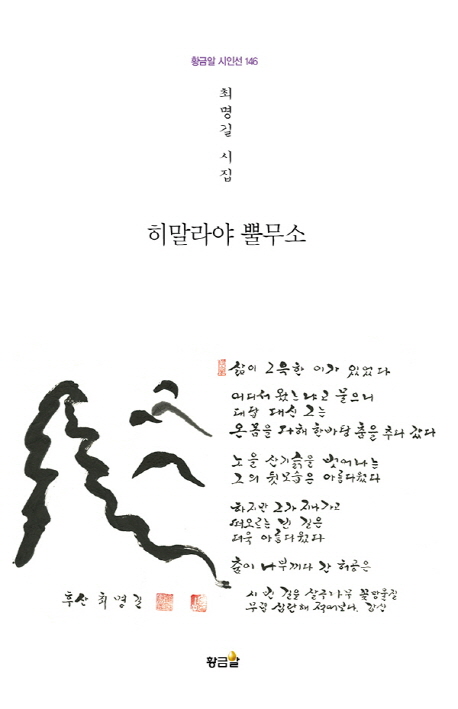 황금알 시인선 146
최명길 시집
히말라야 뿔무소
삶이 그윽한 이가 있었다
어디서 왔느냐고 물으니
대답 대신 그는
온몸을 다해 한바탕 춤을 추다 갔다
노을 산기슭을 벗어나는
그의 뒷모습은 아름다웠다
하지만 그가 지나가고
떠오르는 빈 길은
더욱 아름다웠다
춤이 나부끼다 간 허공은
시 빈 길을 살구나무 꽃망울질
무렵 심란해 적어보다.
후산 최명길
황금알